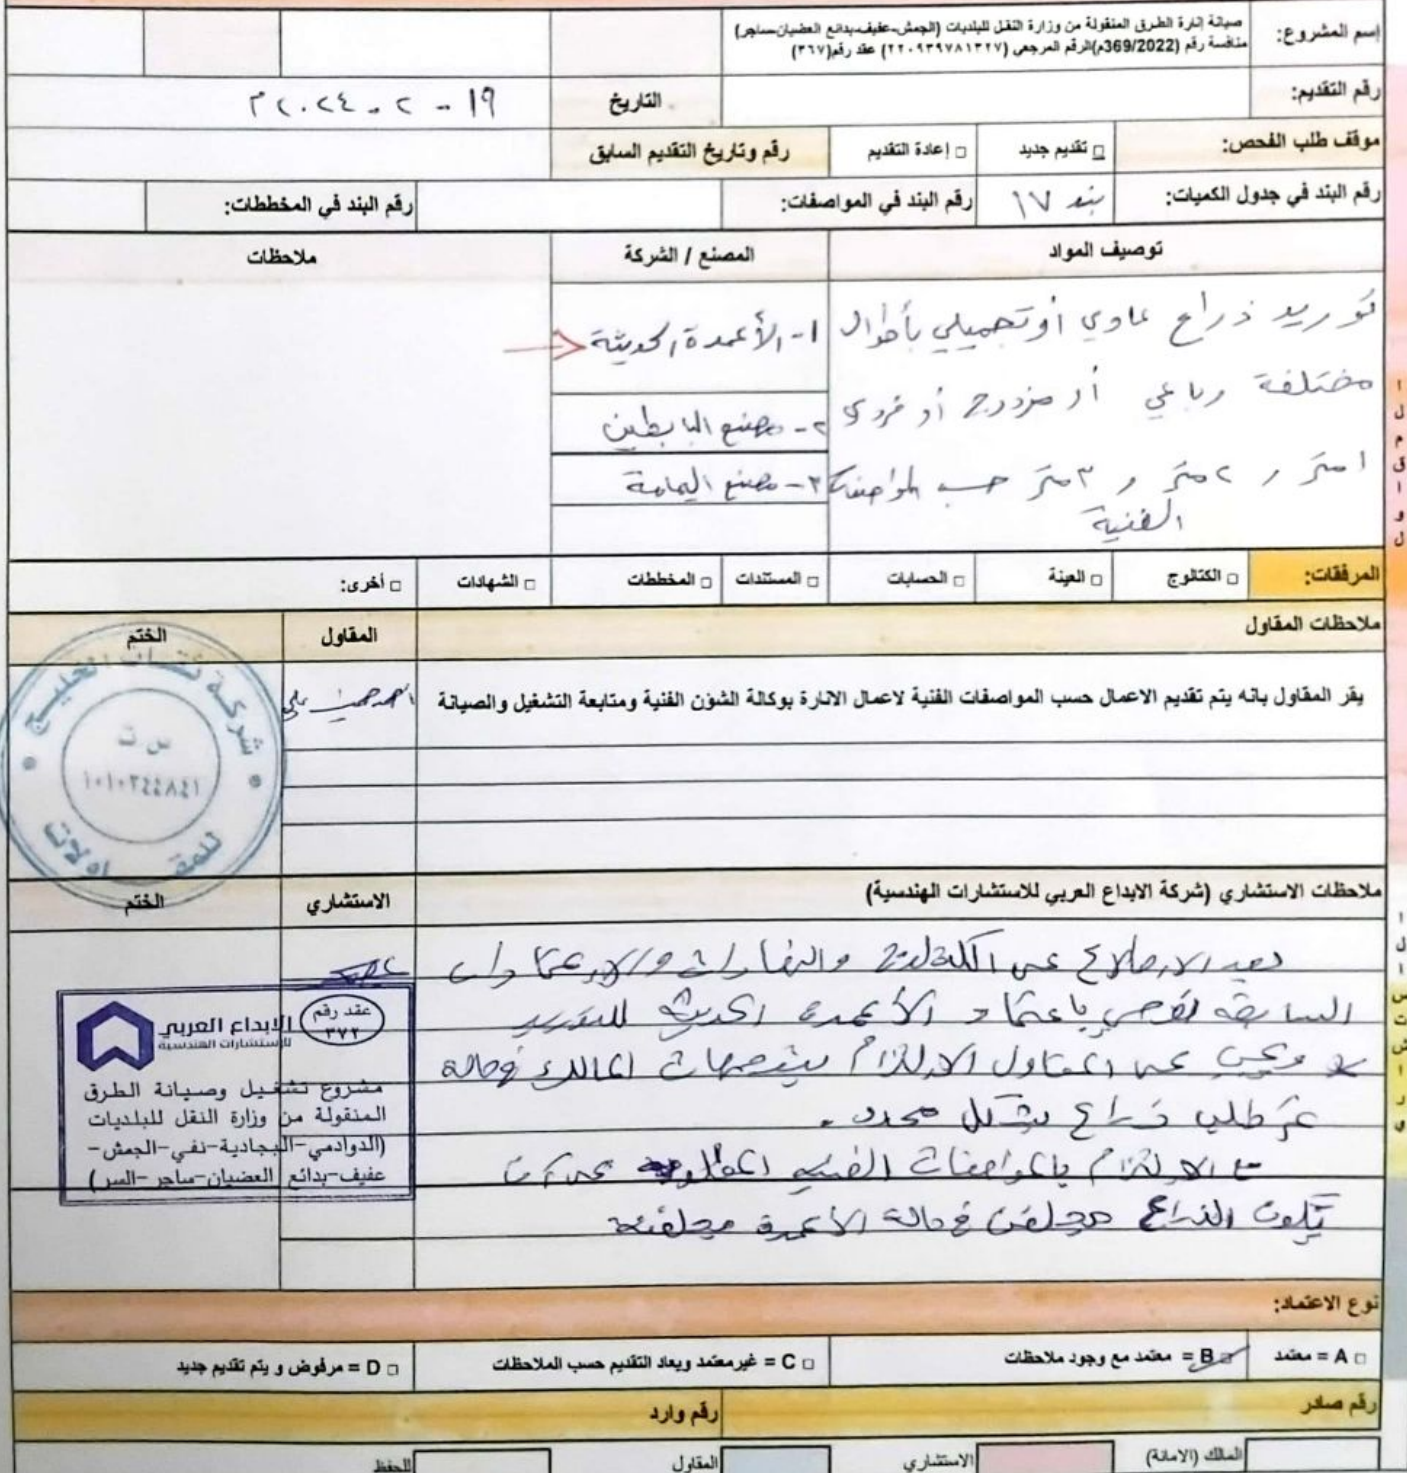 إسم المشروع:
صيانة إنارة الطرق المنقولة من وزارة النقل للبلديات (الجمش-عفيف-بدائع العضيان-ساجر)
منافسة رقم (369/2022م)الرقم المرجعي (٢٢٠٩٣٩٧٨١٣٢٧) عقد رقم(٣٦٧)
رقم التقديم:
التاريخ ١٩ - ٢ - ٢٠٢٤م
موقف طلب الفحص: □ تقديم جديد □ إعادة التقديم رقم وتاريخ التقديم السابق
رقم البند في جدول الكميات: بند ١٧ رقم البند في المواصفات: رقم البند في المخططات:
توصيف المواد المصنع / الشركة ملاحظات
توريد ذراع عادي أو تجميلي بأطوال
مختلفة رباعي أو مزدوج أو فردي
١ متر و ٢ متر و ٣ متر حسب المواصفات
الفنية
١- الأعمدة الحديثة
٢- مصنع البابطين
٣- مصنع اليمامة
المرفقات: □ الكتالوج □ العينة □ الحسابات □ المستندات □ المخططات □ الشهادات □ أخرى:
ملاحظات المقاول المقاول الختم
يقر المقاول بانه يتم تقديم الاعمال حسب المواصفات الفنية لاعمال الانارة بوكالة الشؤن الفنية ومتابعة التشغيل والصيانة
شركة نقاء الخليج
س ت
١٠١٠٣٤٤٨٤١
للمقاولات
ملاحظات الاستشاري (شركة الابداع العربي للاستشارات الهندسية) الاستشاري الختم
بعد الاطلاع على الكتالوج والاعتمادات
السابقة نوصي باعتماد الأعمدة الحديثة للتوريد
ويجب على المقاول الالتزام بتوجيهات المالك في حالة
طلب ذراع بشكل محدد.
مع الالتزام بالمواصفات الفنية المطلوبة
تكون الذراع مجلفن في حالة الأعمدة مجلفنة
عقد رقم
٣٧٢
الابداع العربي
للاستشارات الهندسية
مشروع تشغيل وصيانة الطرق
المنقولة من وزارة النقل للبلديات
(الدوادمي-البجادية-نفي-الجمش-
عفيف-بدائع العضيان-ساجر-السر)
نوع الاعتماد:
□ A = معتمد □ B = معتمد مع وجود ملاحظات □ C = غيرمعتمد ويعاد التقديم حسب الملاحظات □ D = مرفوض و يتم تقديم جديد
رقم صادر رقم وارد
المالك (الامانة) الاستشاري المقاول للحفظ